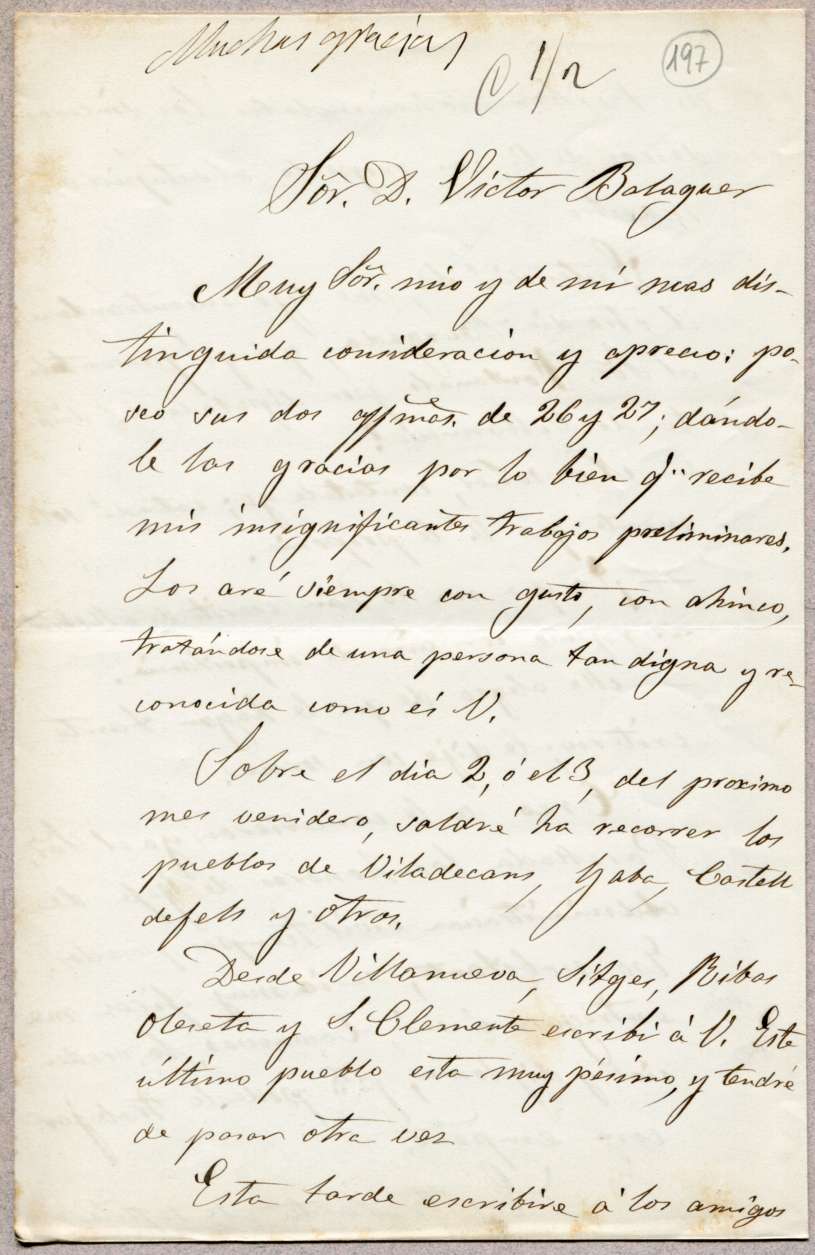 Muchas gracias
C 1/2
197
Sôr. D. Victor Balaguer
Muy Sôr. mio y de mi mas dis-
tinguida consideracion y aprecio: po-
seo sus dos de 26 y 27; dándo-
le las gracias por lo bien q." recibe
mis insignificantes trabajos preliminares.
Los aré siempre con gusto, con ahinco,
tratándose de una persona tan digna y re-
conocida como és V.
Sobre el dia 2, ó el 3, del proximo
mes venidero, saldré ha recorrer los
pueblos de Viladecans, Gaba, Castell
defels y otros.
Desde Villanueva, Sitges, Ribas
Oleseta y S. Clemente escribi á V. Este
último pueblo esta muy pésimo, y tendré
de pasar otra vez
Esta tarde escribire á los amigos